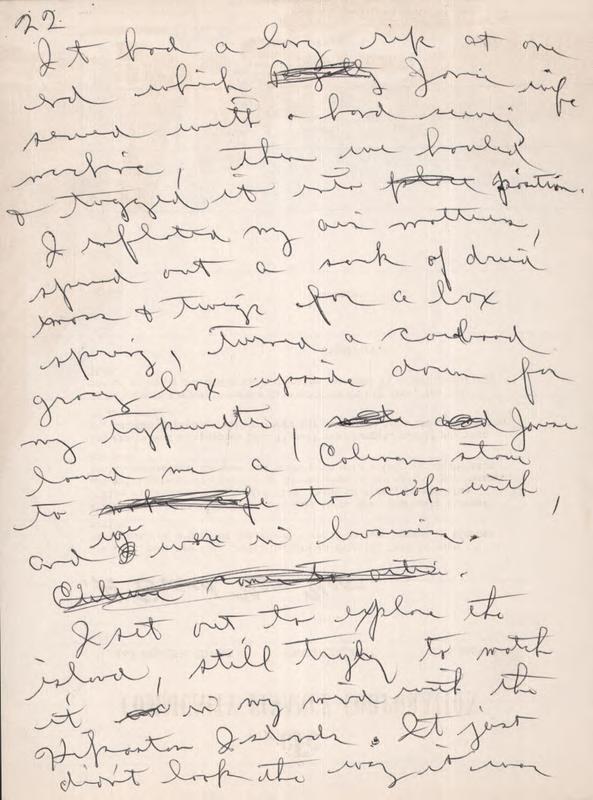 22
It had a long rip at one
end which Jamie wife
sewed with a hand sewing
machine, then we hauled
& tugged it into place position.
I inflated my air mattress,
spread out a sack of dried
moss & twigs for a box
spring, turned a cardboard
grocery box upside down for
my typewriter
loaned me a Coleman stove
to make cafe to cook with,
and we were in business.
I set out to explore the
island, still trying to match
it in my mind with the
Island. It just
didn't look the way it was